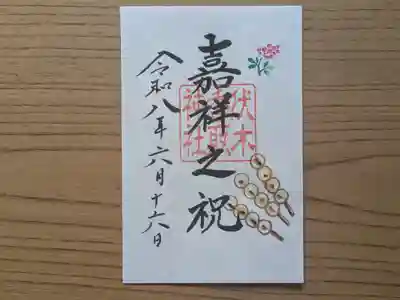 嘉祥之祝
伏木
神社
令和八年六月十六日